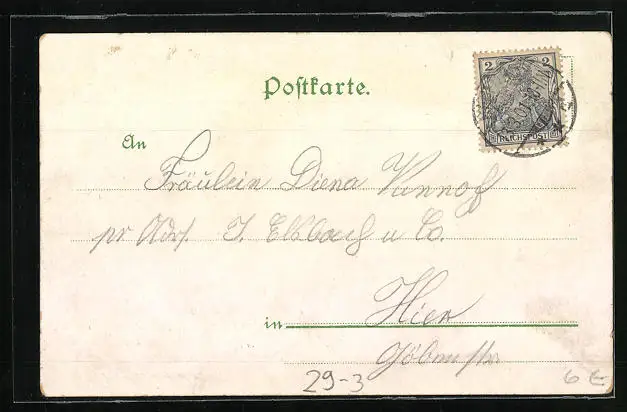 Postkarte.
2
REICHSPOST
An
Fräulein Diena Vannof
pr Adr. J. Elsbach u Co.
in Hier
29-3
6 E